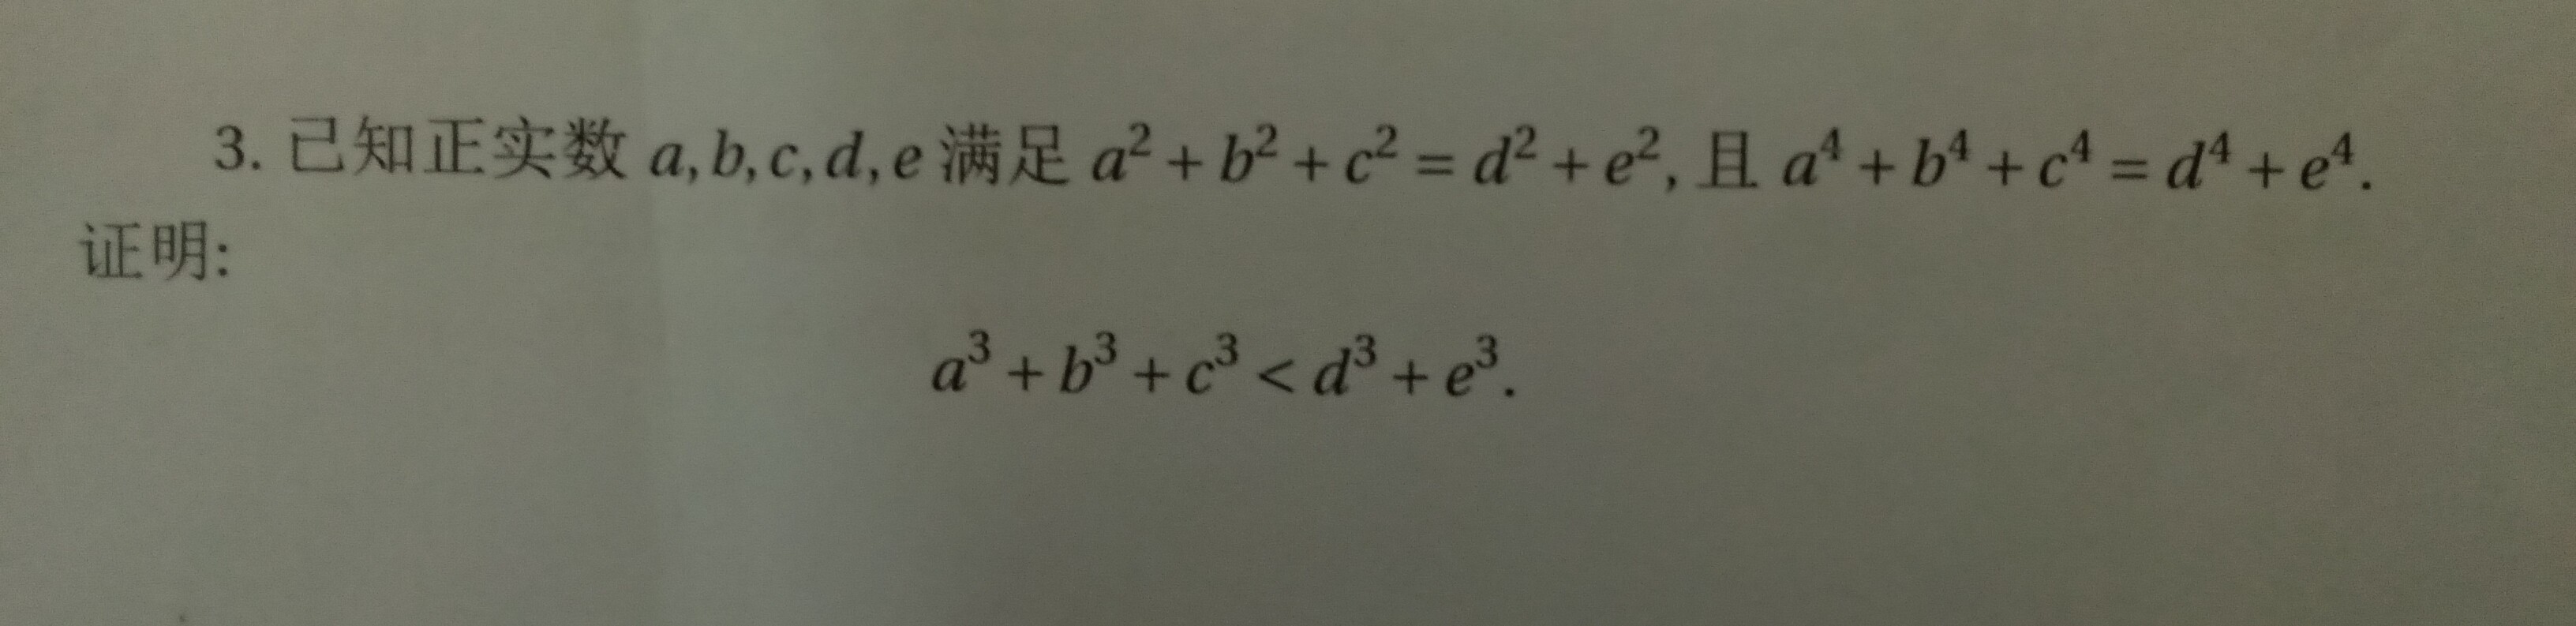 3. 已知正实数 a, b, c, d, e 满足 a² + b² + c² = d² + e², 且 a⁴ + b⁴ + c⁴ = d⁴ + e⁴.
证明:
a³ + b³ + c³ < d³ + e³.